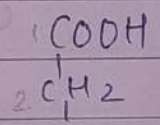 1 COOH
2. CH2